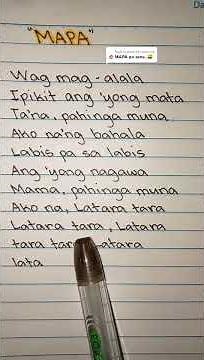 "MAPA"
MAPA po sana
Wag mag-alala
Ipikit ang 'yong mata
Ta'na, pahinga muna
Ako na'ng bahala
Labis pa sa labis
Ang 'yong nagawa
Mama, pahinga muna
Ako na, Latara tara
Latara tara, Latara
tara tara Latara
lata